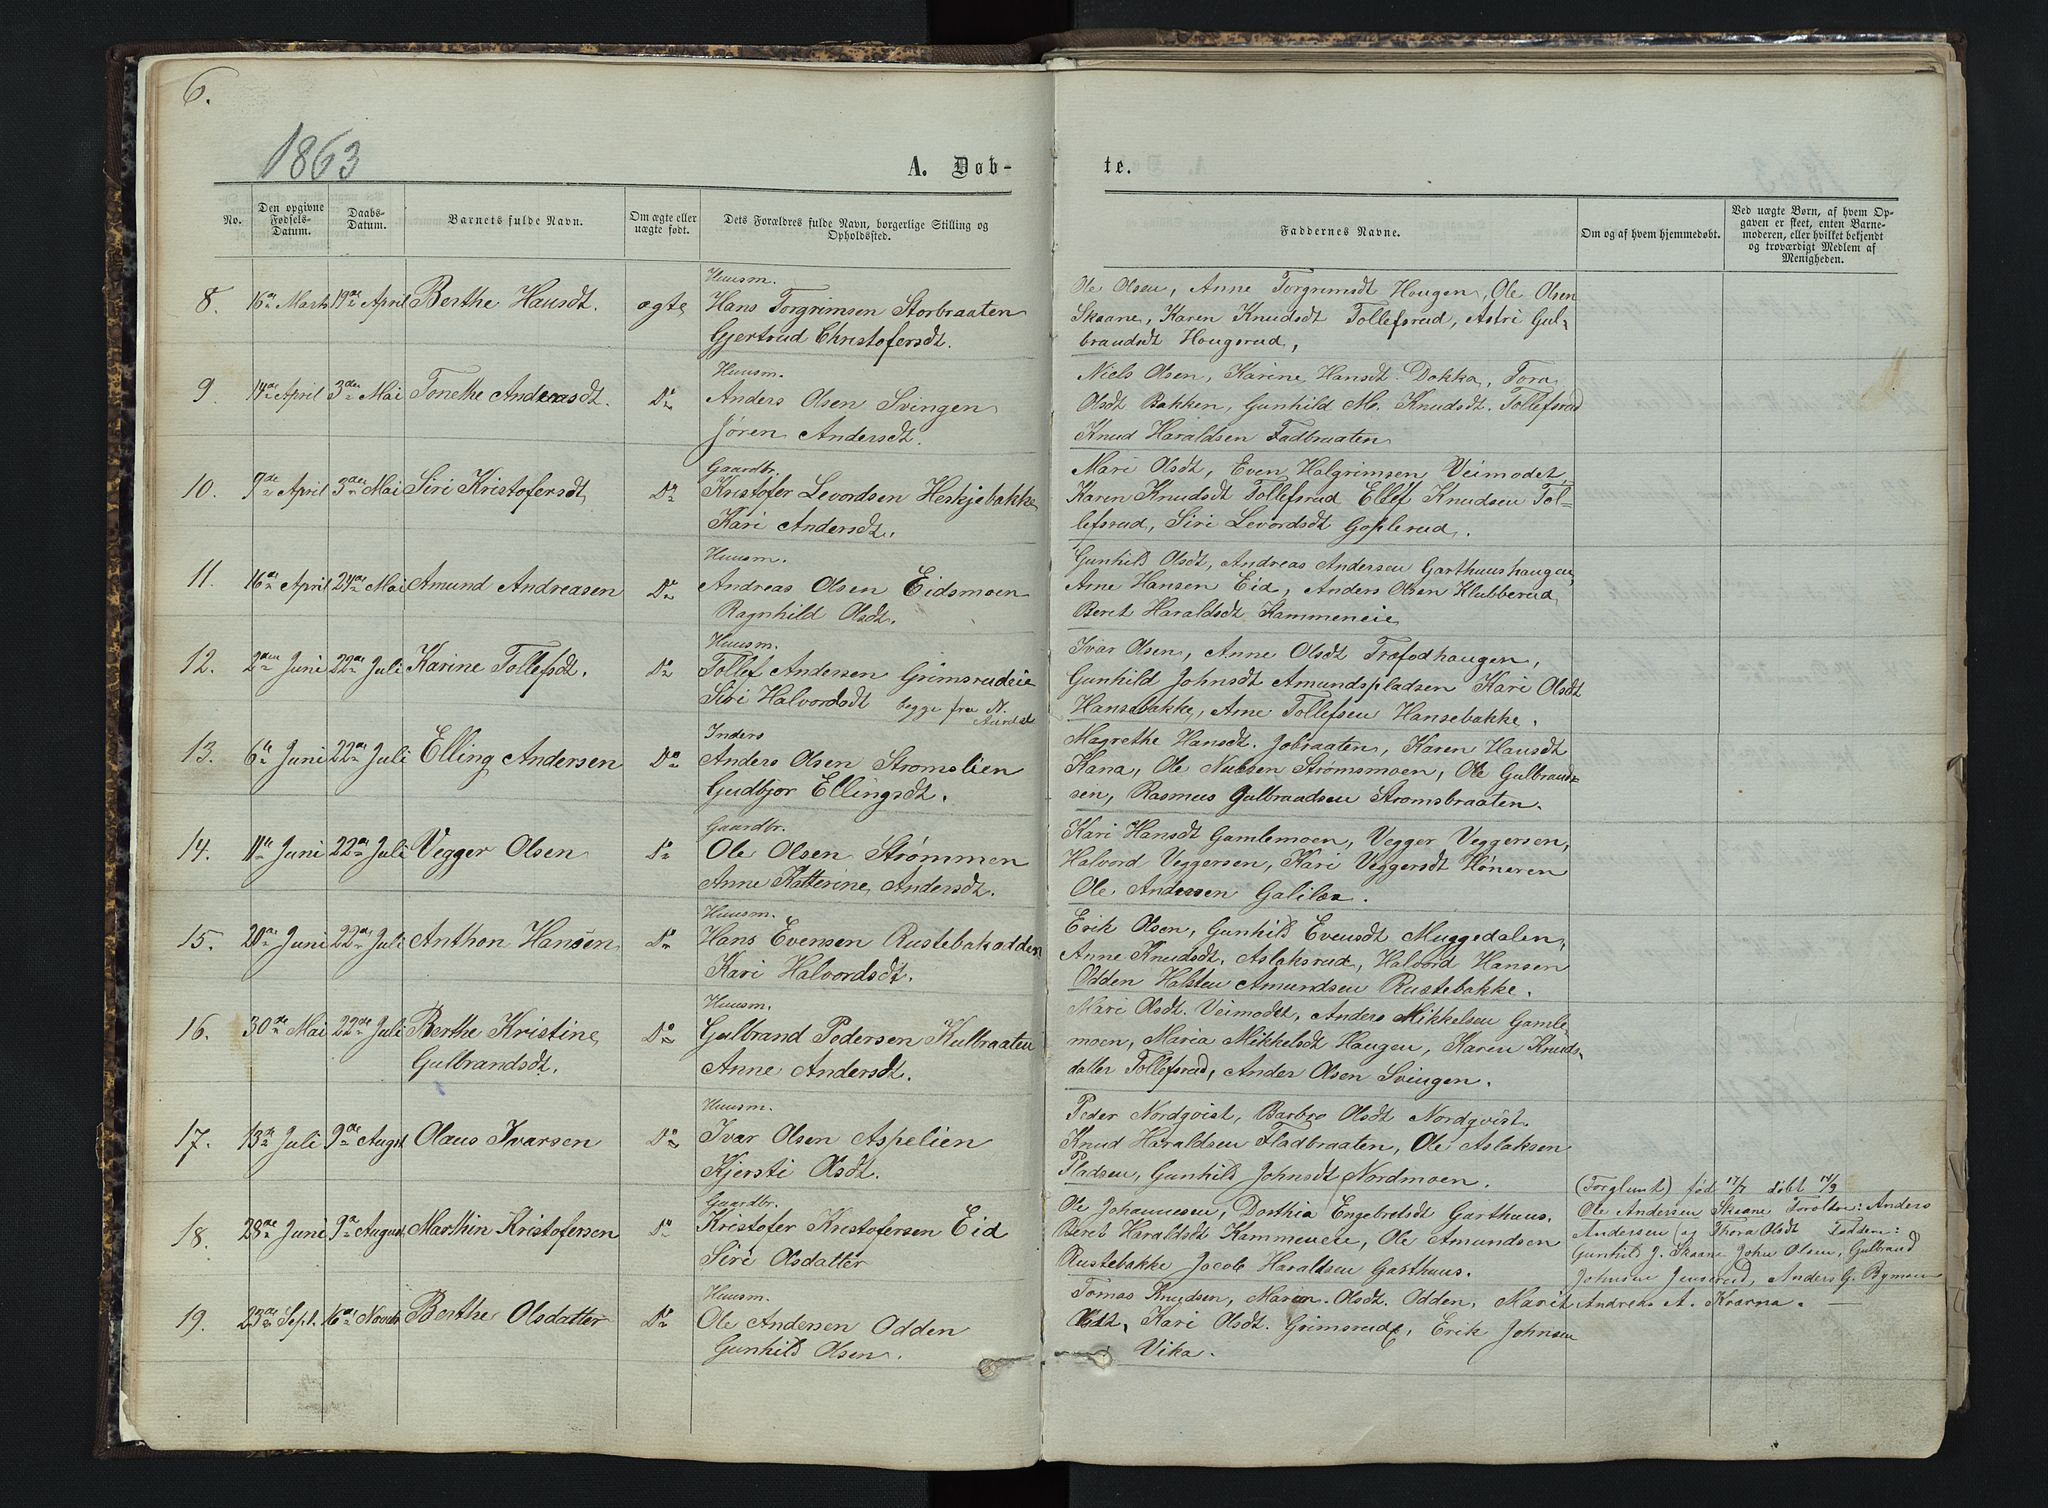 6.
1863
A. Døb-
te.
No.
Den opgivne Fødsels-Datum.
Daabs-Datum.
Barnets fulde Navn.
Om ægte eller uægte født.
Dets Forældres fulde Navn, borgerlige Stilling og Opholdssted.
Faddernes Navne.
Om og af hvem hjemmedøbt.
Ved uægte Børn, af hvem Opgaven er skeet, enten Barnemoderen, eller hvilket bekjendt og troværdigt Medlem af Menigheden.
Huusm.
8. 16de Marts 19de April Berthe Hansdt. ægte Hans Torgrimsen Storbraaten
Gjertrud Christofersdt.
Ole Olsen, Anne Torgrimsdt Hougen, Ole Olsen
Skaane, Karen Knudsdt Tollefsrud, Astri Gul-
brandsdt Hougsrud,
Huusm.
9. 14de April 3die Mai Tonethe Andreasdt. Do Anders Olsen Svingen
Jøren Andersdt.
Niels Olsen, Karine Hansdt. Dokka, Tora
Olsdt Bakken, Gunhild M. Knudsdt. Tollefsrud
Knud Haraldsen Fladbraaten
Gaardbr.
10. 7de April 3die Mai Siri Kristofersdt Do Kristofer Levordsen Heskjebakke
Kari Andersdt.
Mari Olsdt, Even Halgrimsen Veimodet,
Karen Knudsdt Tollefsrud Ellef Knudsen Tol-
lefsrud, Siri Levordsdt Goplerud.
Huusm.
11. 16de April 24de Mai Amund Andreasen Do Andreas Olsen Eidsmoen
Ragnhild Olsdt.
Gunhild Olsdt, Andreas Andersen Garthuushaugen,
Arne Hansen Eid, Anders Olsen Klubberud,
Beret Haraldsdt Kammeneie
Huusm.
12. 2den Juni 22de Juli Karine Tollefsdt. Do Tollef Andersen Grimsrudeie
Siri Halvordsdt begge fra N.
Aurdal
Ivar Olsen, Anne Olsdt Trøfodhaugen,
Gunhild Johnsdt Amundspladsen Kari Olsdt
Hansebakke, Arne Tollefsen Hansebakke.
Inders
13. 6te Juni 22de Juli Elling Andersen Do Anders Olsen Strømslien
Gudbjor Ellingsdt.
Magrethe Hansdt. Jobraaten, Karen Hansdt
Kana, Ole Nielsen Strømsmoen, Ole Gulbrand-
sen, Rasmus Gulbrandsen Strømsbraaten.
Gaardbr.
14. 11te Juni 22de Juli Vegger Olsen Do Ole Olsen Strømmen
Anne Katterine Andersdt.
Kari Hansdt Gamlemoen, Vegger Veggersen,
Halvord Veggersen, Kari Veggersdt Høneren
Ole Andersen Galilæa.
Huusm.
15. 20de Juni 22de Juli Anthon Hansen Do Hans Evensen Rustebakodden
Kari Halvordsdt.
Erik Olsen, Gunhild Evensdt Muggedalen,
Anne Knudsdt. Aslaksrud, Halvord Hansen
Odden Halsten Amundsen Rustebakke.
Huusm.
16. 30de Mai 22de Juli Berthe Kristine Do Gulbrand Pedersen Kulbraaten
Gulbrandsdt. Anne Andersdt.
Mari Olsdt. Veimodet, Anders Mikkelsen Gamle-
moen, Maria Mikkelsdt Haugen, Karen Knuds-
datter Tollefsrud, Ander Olsen Svingen.
Huusm.
17. 13de Juli 9de August Olaus Ivarsen Do Ivar Olsen Aspelien
Kjersti Olsdt.
Peder Nordqvist, Barbro Olsdt Nordqvist.
Knud Haraldsen Fladbraaten, Ole Aslaksen
Pladsen, Gunhild Johnsdt Nordmoen.
Gaardbr.
18. 28de Juni 9de August Marthin Kristofersen Do Kristofer Kristofersen Eid
Siri Olsdatter
Ole Johannesen, Dorthia Engebretsdt Garthuus.
Beret Haraldsdt Kammeneie, Ole Amundsen
Rustebakke Jacob Haraldsen Garthuus.
(Forglemt) fød 17/7 døbt 14/9
Ole Andersen Skaane Foreldre: Anders
Andersen og Thora Olsdt Faddere:
Gunhild J. Skaane John Olsen, Gulbrand
Johnsen Jensrud, Anders G. Bymoen
Andreas A. Kværna. —
Huusm.
19. 23de Sept. 16de Novbr Berthe Olsdatter Do Ole Andersen Odden
Gunhild Olsen.
Tomas Knudsen, Maren Olsdt. Odden, Marit
Olsdt, Kari Olsdt. Grimsrude, Erik Johnsen
Vika.